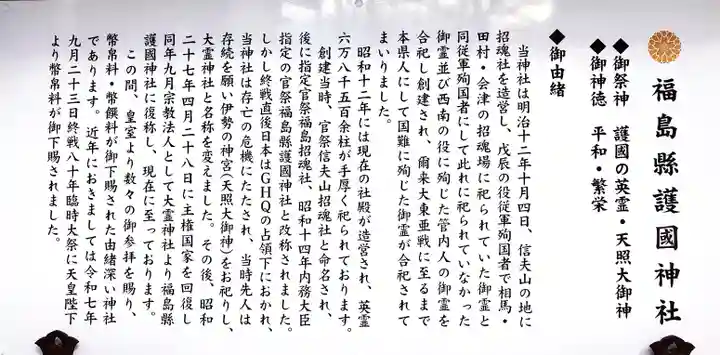 福島縣護國神社
◆御祭神 護國の英霊・天照大御神
◆御神徳 平和・繁栄
◆御由緒
当神社は明治十二年十月四日、信夫山の地に
招魂社を造営し、戊辰の役従軍殉国者で相馬・
田村・会津の招魂場に祀られていた御霊と
同従軍殉国者にして此れに祀られていなかった
御霊並び西南の役に殉じた管内人の御霊を
合祀し創建され、爾来大東亜戦に至るまで
本県人にして国難に殉じた御霊が合祀されて
まいりました。
昭和十二年には現在の社殿が造営され、英霊
六万八千五百余柱が手厚く祀られております。
創建当時、官祭信夫山招魂社と命名され、
後に指定官祭福島招魂社、昭和十四年内務大臣
指定の官祭福島縣護國神社と改称されました。
しかし終戦直後日本はGHQの占領下におかれ、
当神社は存亡の危機にたたされ、当時先人は
存続を願い伊勢の神宮(天照大御神)をお祀りし、
大霊神社と名称を変えました。その後、昭和
二十七年四月二十八日に主権国家を回復し
同年九月宗教法人として大霊神社より福島縣
護國神社に復称し、現在に至っております。
この間、皇室より数々の御参拝を賜り、
幣帛料・幣饌料が御下賜された由緒深い神社
であります。近年におきましては令和七年
九月二十三日終戦八十年臨時大祭に天皇陛下
より幣帛料が御下賜されました。